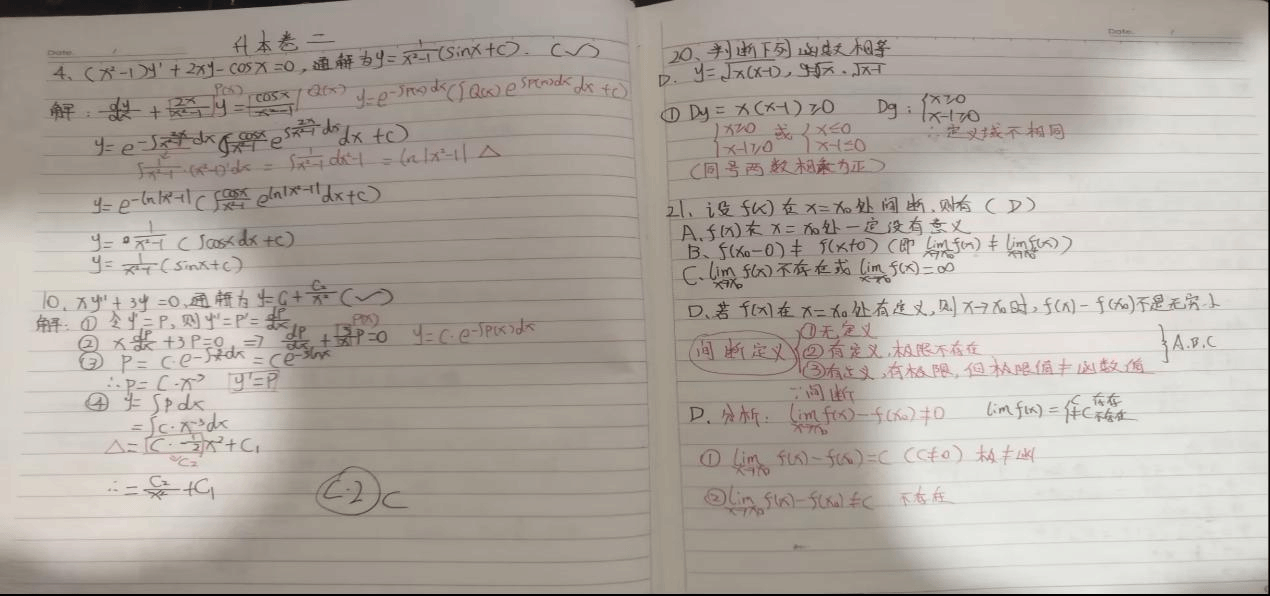 Date.
升本卷二
4、(x²-1)y' + 2xy - cosx = 0, 通解为 y = 1/(x²-1) (sinx+c). (✓)
解: dy/dx + 2x/(x²-1) y = cosx/(x²-1) P(x) Q(x) y = e^-∫P(x)dx (∫Q(x) e^∫P(x)dx dx + c)
y = e^-∫2x/(x²-1) dx (∫cosx/(x²-1) e^∫2x/(x²-1) dx dx + c)
∫1/(x²-1)·(x²-1)'dx = ∫1/(x²-1) dx²-1 = ln|x²-1| △
y = e^-ln|x²-1| (∫cosx/(x²-1) e^ln|x²-1| dx+c)
y = 1/(x²-1) (∫cosx dx + c)
y = 1/(x²-1) (sinx+c)
10、xy'' + 3y' = 0, 通解为 y = C₁ + C₂/x² (✓)
解: ① 令 y' = P, 则 y'' = P' = dP/dx
② x dP/dx + 3P = 0 ⇒ dP/dx + 3/x P = 0 P(x) y = C·e^-∫P(x)dx
③ P = C·e^-∫3/x dx = Ce^-3lnx
∴ P = C·x⁻³ y' = P
④ y = ∫P dx
= ∫C·x⁻³dx
△ = C·-1/2 x⁻² + C₁
C₂
∴ = C₂/x² + C₁
C·2 C
Date.
20、判断下列函数相等
D. y = √x(x-1), y = √x · √x-1
① Dy = x(x-1) ≥ 0 Dg: {x≥0 x-1≥0
{x≥0 x-1≥0 或 {x≤0 x-1≤0 ∴定义域不相同
(同号两数相乘为正)
21、设 f(x) 在 x = x₀ 处间断, 则有 (D)
A. f(x) 在 x = x₀ 处一定没有意义
B. f(x₀-0) ≠ f(x+0) (即 lim f(x) ≠ lim f(x))
C. lim x→x₀ f(x) 不存在或 lim x→x₀ f(x) = ∞
D. 若 f(x) 在 x = x₀ 处有定义, 则 x→x₀ 时, f(x) - f(x₀) 不是无穷小
间断定义 ① 无定义
② 有定义, 极限不存在 } A.B.C
③ 有定义, 有极限, 但极限值 ≠ 函数值
∵间断
D. 分析: lim x→x₀ f(x) - f(x₀) ≠ 0 lim f(x) = {C 存在 ≠C 不存在
① lim x→x₀ f(x) - f(x₀) = C (C≠0) 极≠函
② lim x→x₀ f(x) - f(x₀) ≠ C 不存在